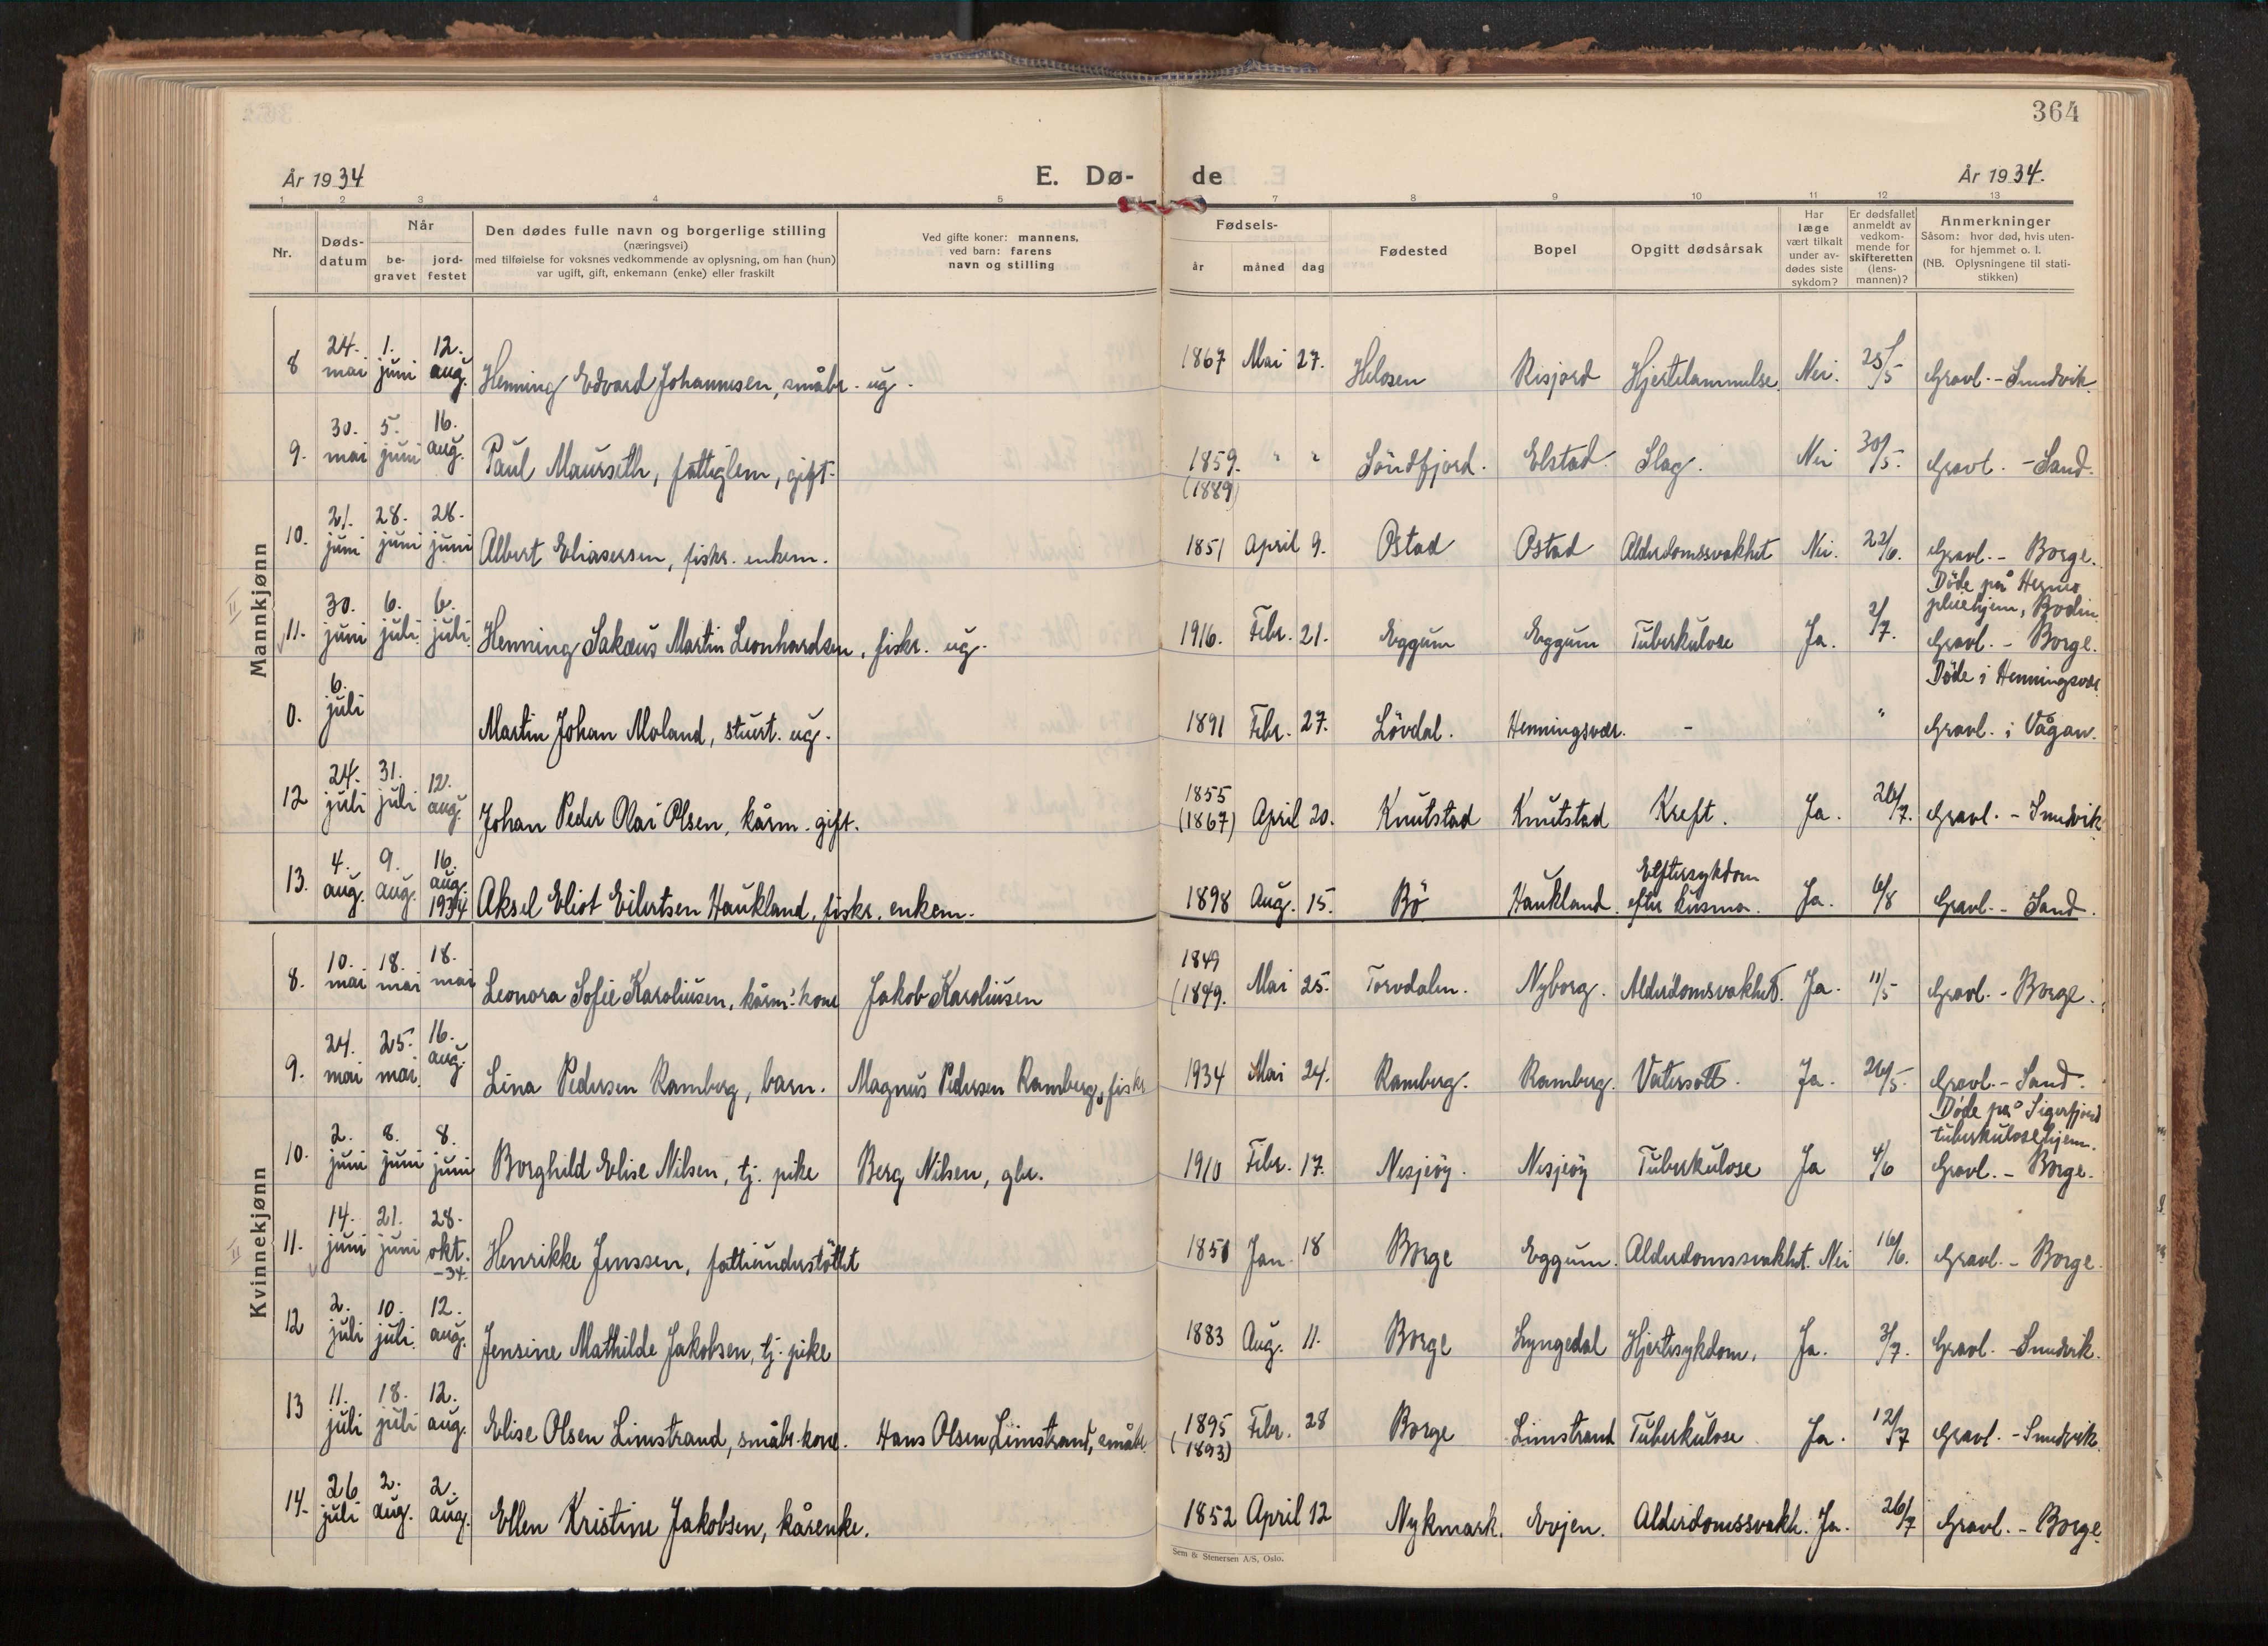 364
År 1934
E. Dø-
de
År 1934.
1 2 3 4 5 7 8 9 10 11 12 13
Nr.
Døds-
datum
Når
be-
gravet
jord-
festet
Den dødes fulle navn og borgerlige stilling
(næringsvei)
med tilføielse for voksnes vedkommende av oplysning, om han (hun)
var ugift, gift, enkemann (enke) eller fraskilt
Ved gifte koner: mannens,
ved barn: farens
navn og stilling
Fødsels-
år måned dag
Fødested
Bopel
Opgitt dødsårsak
Har
læge
vært tilkalt
under av-
dødes siste
sykdom?
Er dødsfallet
anmeldt av
vedkom-
mende for
skifteretten
(lens-
mannen)?
Anmerkninger
Såsom: hvor død, hvis uten-
for hjemmet o. l.
(NB. Oplysningene til stati-
stikken)
Mannkjønn
8 24. mai 1. juni 12. aug. Henning Edvard Johannesen, småbr. ug. 1867 Mai 27. Helosen Risjord Hjertelammelse. Nei. 25/5 Gravl. - Sundvik.
9. 30. mai 5. juni 16. aug. Paul Maurseth, fattiglem, gift. 1859. " " Söndfjord. Elstad. Slag. Nei 30/5. Gravl. - Sand.
(1889)
10. 21. juni 28. juni 28. juni Albert Eliasersen, fiskr. enkem. 1851 April 9. Ostad Ostad Alderdomssvakhet Nei. 22/6. Gravl. - Borge.
Döde på Hernes
pleiehjem, Bodin.
11. 30. juni 6. juli 6. juli. Henning Sakæus Martin Leonhardsen, fiskr. ug. 1916. Febr. 21. Eggum Eggum Tuberkulose Ja. 2/7. Gravl. - Borge.
Döde i Henningsvær
0. 6. juli Martin Johan Moland, stuert. ug. 1891 Febr. 27. Lövdal. Henningsvær. - " Gravl. i Vågan.
12 24. juli 31. juli 12. aug. Johan Peder Olai Olsen, kårm. gift. 1855 (1867) April 20. Knutstad Knutstad Kreft. Ja. 26/7. Gravl. - Sundvik
13. 4. aug. 9. aug. 16. aug. 1934 Aksel Eliot Eilertsen Haukland, fiskr. enkem. 1898 Aug. 15. Bö Haukland. Eftersykdom efter krisma. Ja. 6/8 Gravl. - Sand.
Kvinnekjønn
8. 10. mai 18. mai 18. mai Leonora Sofie Karoliusen, kårm.s kone Jakob Karoliusen 1849 (1849. Mai 25. Torvdalen. Nyborg. Alderdomsvakhet. Ja. 11/5 Gravl. - Borge.
9. 24. mai 25. mai. 16. aug. Lina Pedersen Ramberg, barn. Magnus Pedersen Ramberg, fiskr 1934 Mai 24. Ramberg. Ramberg. Vatersott. Ja. 26/5. Gravl. - Sand.
Döde på Sigerfjord
tuberkulosehjem.
10. 2. juni 8. juni 8. juni Borghild Elise Nilsen, tj. pike Berg Nilsen, gbr. 1910 Febr. 17. Nesjeöy. Nesjeöy Tuberkulose Ja 4/6 Gravl. - Borge.
11. 14. juni 21. juni 28. okt. -34. Henrikke Jenssen, fattiunderstöttet 1851 Jan. 18 Borge Eggum. Alderdomssvakhet. Nei 16/6. Gravl. - Borge.
12 2. juli 10. juli. 12. aug. Jensine Mathilde Jakobsen, tj. pike 1883 Aug. 11. Borge Lyngedal Hjertesykdom. Ja. 3/7. Gravl. - Sundvik.
13 11. juli 18. juli 12. aug. Elise Olsen Limstrand, småbr.kone. Hans Olsen Limstrand, småbr. 1895 (1893) Febr. 28 Borge Limstrand Tuberkulose Ja. 12/7 Gravl. - Sundvik.
14. 26 juli 2. aug. 2. aug. Ellen Kristine Jakobsen, kårenke. 1852 April 12 Nykmark. Evjen. Alderdomssvakh. Ja. 26/7 Gravl. - Borge.
Sem & Stenersen A/S, Oslo.